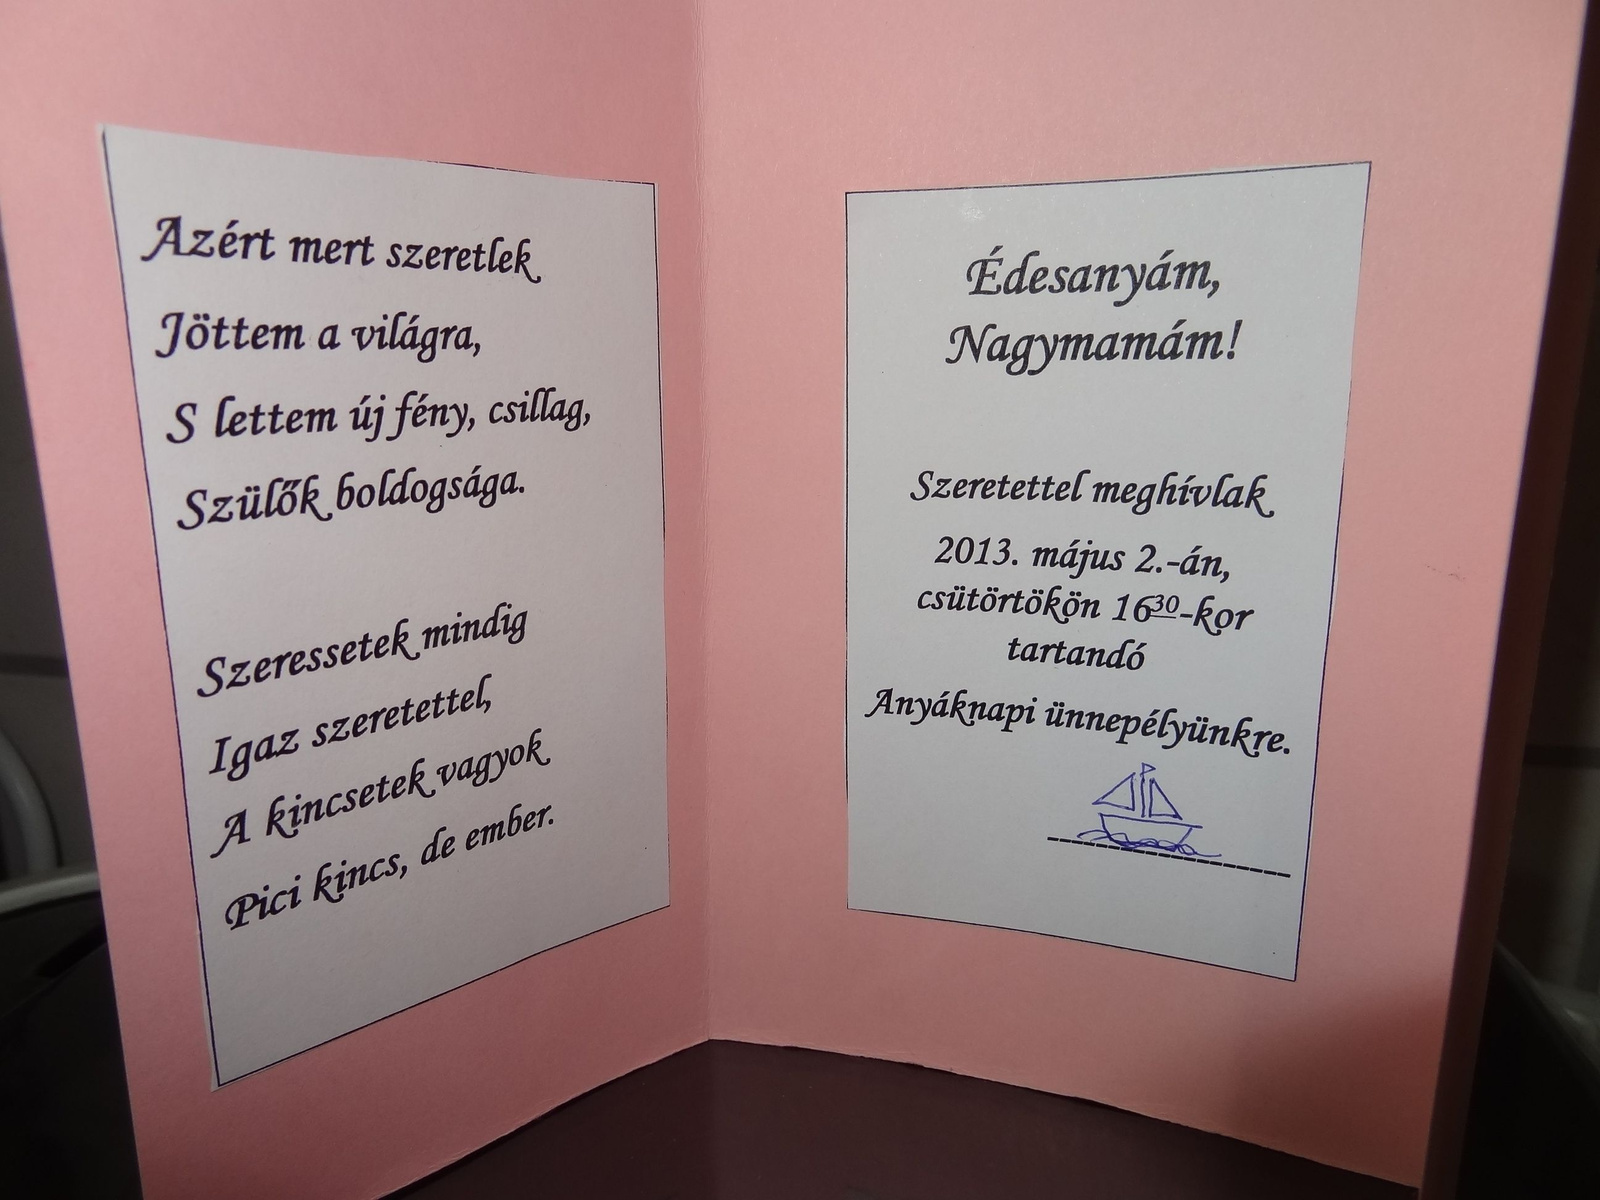 Azért mert szeretlek
Jöttem a világra,
S lettem új fény, csillag,
Szülők boldogsága.
Szeressetek mindig
Igaz szeretettel,
A kincsetek vagyok
Pici kincs, de ember.
Édesanyám,
Nagymamám!
Szeretettel meghívlak
2013. május 2.-án,
csütörtökön 16³⁰-kor
tartandó
Anyáknapi ünnepélyünkre.